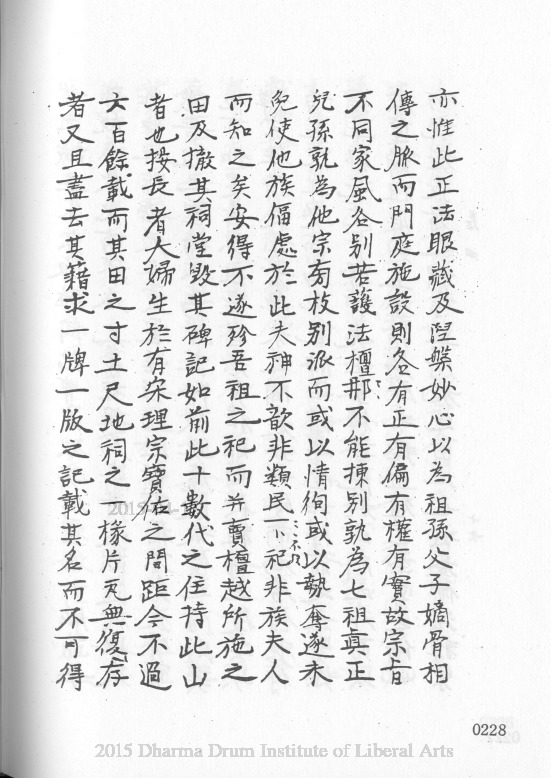 亦惟此正法眼藏及涅槃妙心以為祖孫父子嫡骨相
傳之脈而門庭施設則各有正有偏有權有實故宗旨
不同家風各別若護法檀那不能揀別孰為七祖眞正
兒孫孰為他宗旁枝別派而或以情徇或以勢奪遂未
免使他族偪處於此夫神不歆非類民不祀非族夫人
而知之矣安得不遂殄吾祖之祀而并賣檀越所施之
田及撤其祠堂毀其碑記如前此十數代之住持此山
者也按長者夫婦生於有宋理宗寶佑之間距今不過
六百餘載而其田之寸土尺地祠之一椽片瓦無復存
者又且盡去其籍求一牌一版之記載其名而不可得
0228
2015 Dharma Drum Institute of Liberal Arts